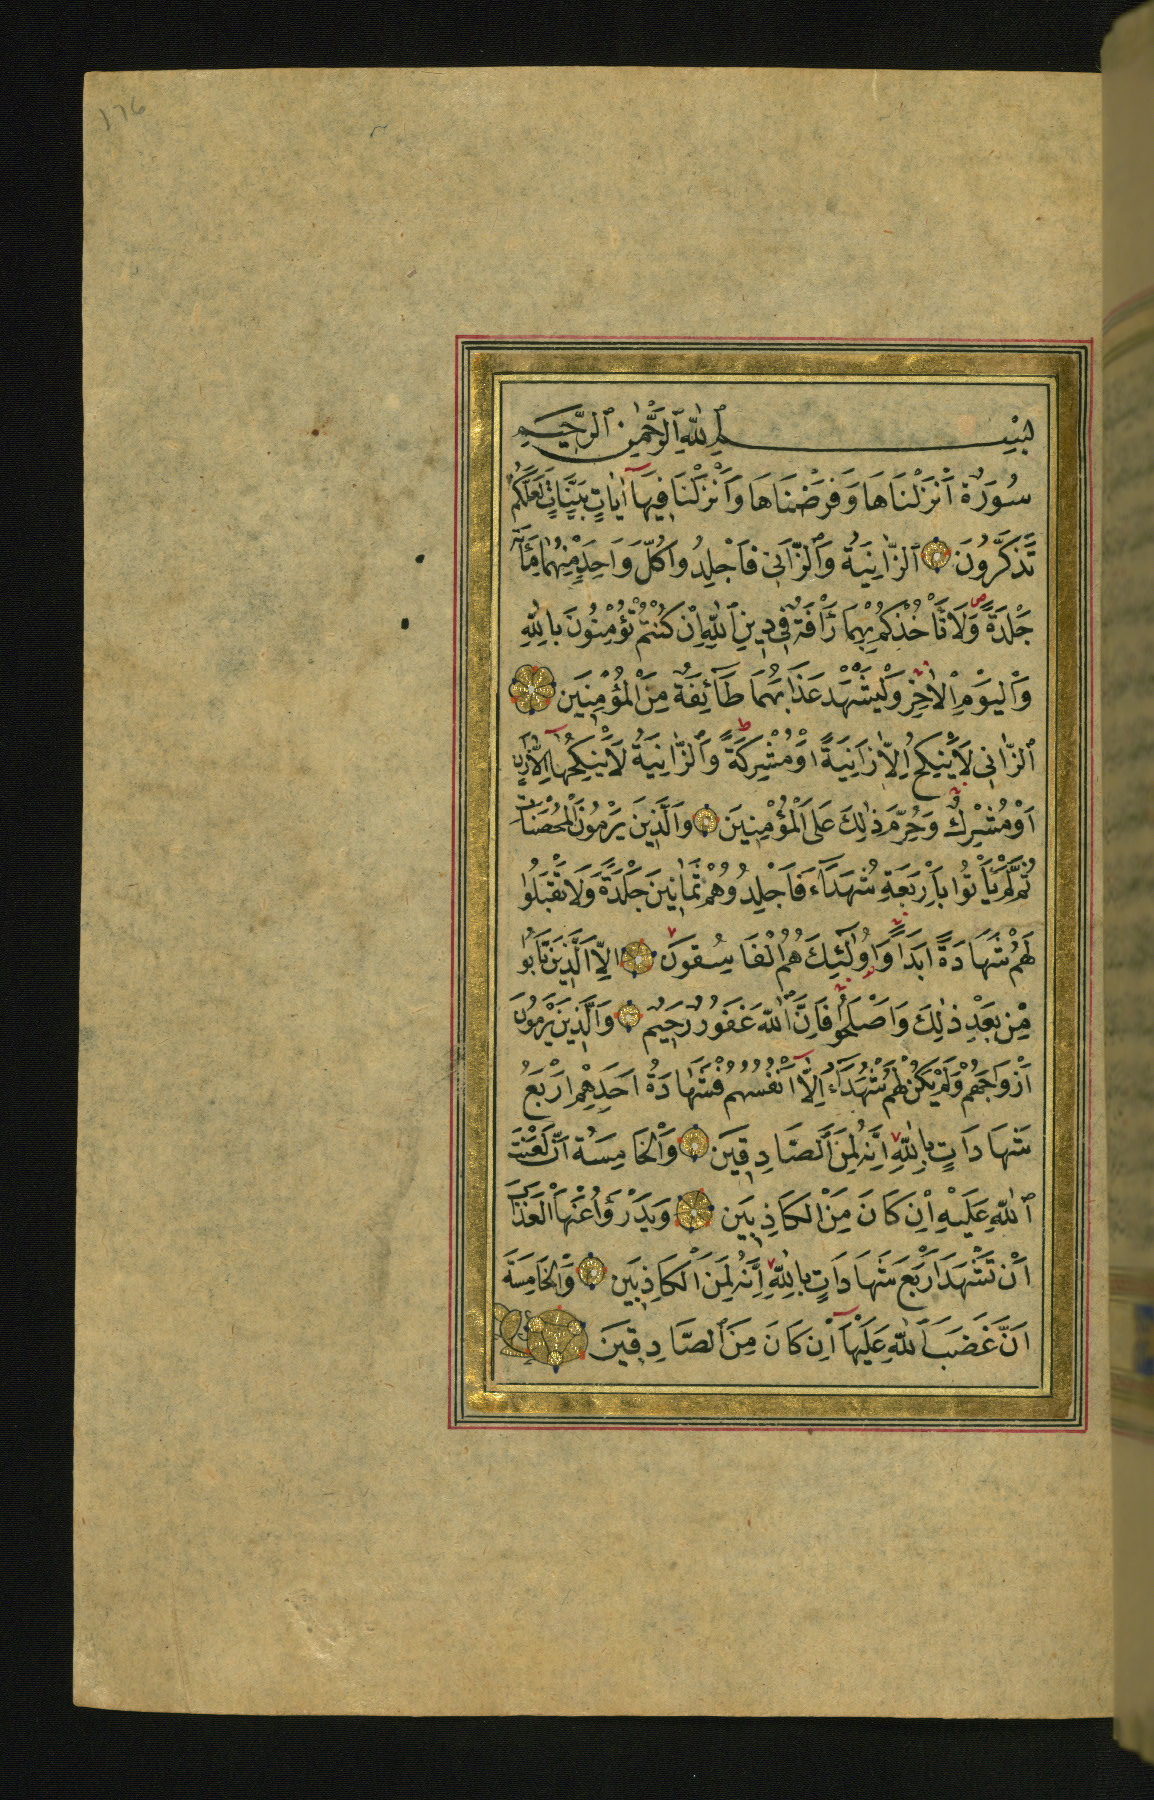 ١٧٤
بِسْمِ ٱللّٰهِ ٱلرَّحْمٰنِ ٱلرَّحِيمِ
سُورَةٌ اَنْزَلْنَاهَا وَفَرَضْنَاهَا وَاَنْزَلْنَا فِيهَآ اٰيَاتٍ بَيِّنَاتٍ لَعَلَّكُمْ
تَذَكَّرُونَ ٱلزَّانِيَةُ وَٱلزَّانِى فَاجْلِدُوا كُلَّ وَاحِدٍ مِنْهُمَا مِائَةَ
جَلْدَةٍ وَلَا تَأْخُذْكُمْ بِهِمَا رَأْفَةٌ فِى دِينِ ٱللّٰهِ اِنْ كُنْتُمْ تُؤْمِنُونَ بِاللّٰهِ
وَالْيَوْمِ ٱلْاٰخِرِ وَلْيَشْهَدْ عَذَابَهُمَا طَآئِفَةٌ مِنَ الْمُؤْمِنِينَ
ٱلزَّانِى لَا يَنْكِحُ اِلَّا زَانِيَةً اَوْ مُشْرِكَةً وَٱلزَّانِيَةُ لَا يَنْكِحُهَآ اِلَّا زَانٍ
اَوْ مُشْرِكٌ وَحُرِّمَ ذٰلِكَ عَلَى الْمُؤْمِنِينَ وَالَّذِينَ يَرْمُونَ الْمُحْصَنَاتِ
ثُمَّ لَمْ يَأْتُوا بِاَرْبَعَةِ شُهَدَآءَ فَاجْلِدُوهُمْ ثَمَانِينَ جَلْدَةً وَلَا تَقْبَلُوا
لَهُمْ شَهَادَةً اَبَدًا وَاُولٰٓئِكَ هُمُ الْفَاسِقُونَ اِلَّا الَّذِينَ تَابُوا
مِنْ بَعْدِ ذٰلِكَ وَاَصْلَحُوا فَاِنَّ ٱللّٰهَ غَفُورٌ رَحِيمٌ وَالَّذِينَ يَرْمُونَ
اَزْوَاجَهُمْ وَلَمْ يَكُنْ لَهُمْ شُهَدَآءُ اِلَّآ اَنْفُسُهُمْ فَشَهَادَةُ اَحَدِهِمْ اَرْبَعُ
شَهَادَاتٍ بِاللّٰهِ اِنَّهُ لَمِنَ ٱلصَّادِقِينَ وَالْخَامِسَةُ اَنَّ لَعْنَتَ
ٱللّٰهِ عَلَيْهِ اِنْ كَانَ مِنَ الْكَاذِبِينَ وَيَدْرَؤُا عَنْهَا الْعَذَابَ
اَنْ تَشْهَدَ اَرْبَعَ شَهَادَاتٍ بِاللّٰهِ اِنَّهُ لَمِنَ الْكَاذِبِينَ وَالْخَامِسَةَ
اَنَّ غَضَبَ ٱللّٰهِ عَلَيْهَآ اِنْ كَانَ مِنَ ٱلصَّادِقِينَ